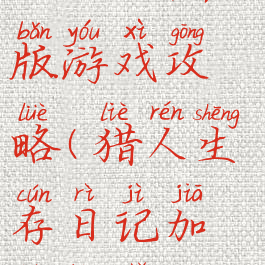 bǎn yóu xì gōng
版游戏攻
lüè liè rén shēng
略(猎人生
cún rì jì jiā
存日记加